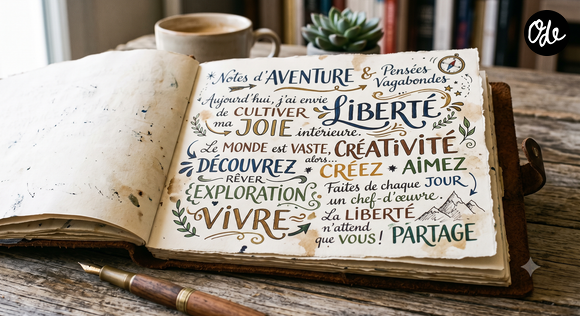 Notes d'AVENTURE & Pensées Vagabondes
Aujourd'hui, j'ai envie
de CULTIVER LIBERTÉ,
ma JOIE intérieure.
Le MONDE est VASTE, CRÉATIVITÉ
DÉCOUVREZ alors... CRÉEZ * AIMEZ
RÊVER
EXPLORATION Faites de chaque JOUR
un chef-d'œuvre.
VIVRE La LIBERTÉ
n'attend
que VOUS! PARTAGE
Ode